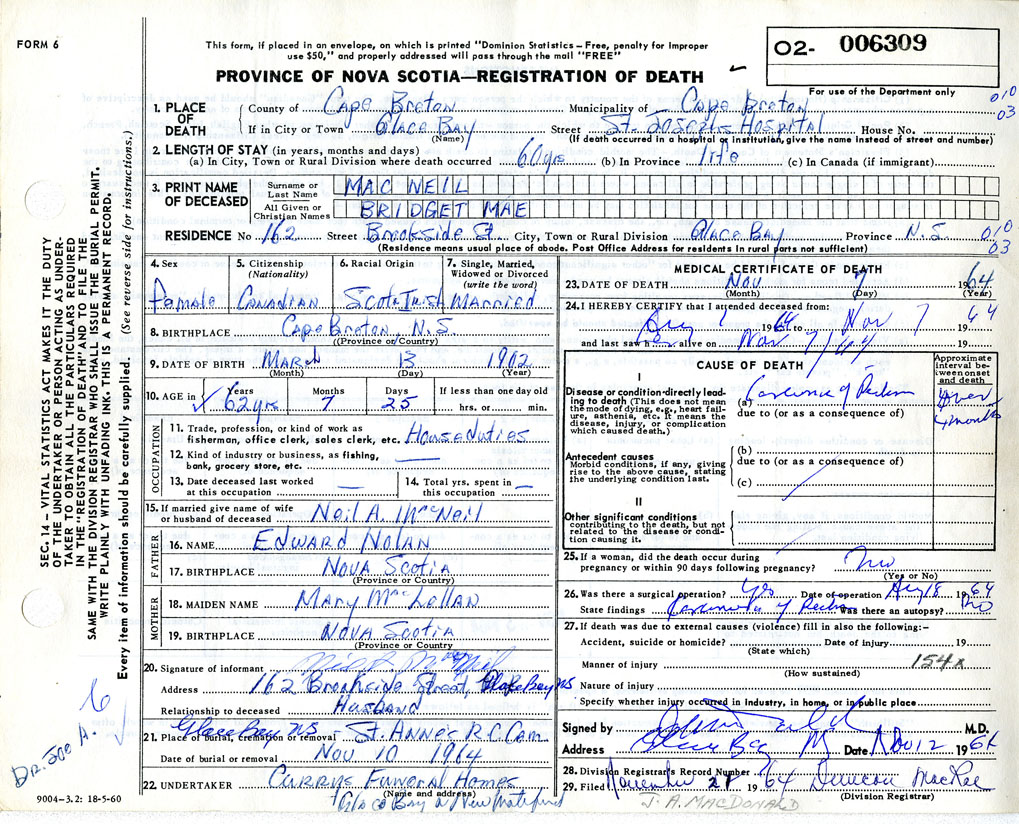 FORM 6
This form, if placed in an envelope, on which is printed "Dominion Statistics – Free, penalty for improper
use $50," and properly addressed will pass through the mail "FREE"
PROVINCE OF NOVA SCOTIA—REGISTRATION OF DEATH
02- 006309
For use of the Department only
010
03
1. PLACE OF DEATH County of Cape Breton Municipality of Cape Breton
If in City or Town Glace Bay Street St. Josephs Hospital House No.
(Name) (If death occurred in a hospital or institution, give name instead of street and number)
2. LENGTH OF STAY (in years, months and days)
(a) In City, Town or Rural Division where death occurred 60 yrs (b) In Province Life (c) In Canada (if immigrant)
3. PRINT NAME OF DECEASED Surname or Last Name MAC NEIL
All Given or Christian Names BRIDGET MAE
RESIDENCE No 162 Street Brookside St City, Town or Rural Division Glace Bay Province N.S 010
03
(Residence means usual place of abode. Post Office Address for residents in rural parts not sufficient)
4. Sex 5. Citizenship (Nationality) 6. Racial Origin 7. Single, Married, Widowed or Divorced (write the word)
Female Canadian Scotch Irish Married
8. BIRTHPLACE Cape Breton, N.S
(Province or Country)
9. DATE OF BIRTH March 13 1902
(Month) (Day) (Year)
10. AGE in Years Months Days If less than one day old
62 yrs 7 25 hrs. or min.
OCCUPATION
11. Trade, profession, or kind of work as fisherman, office clerk, sales clerk, etc. House duties
12. Kind of industry or business, as fishing, bank, grocery store, etc.
13. Date deceased last worked at this occupation —
14. Total yrs. spent in this occupation —
15. If married give name of wife or husband of deceased Neil A. McNeil
FATHER
16. NAME Edward Nolan
17. BIRTHPLACE Nova Scotia
(Province or Country)
MOTHER
18. MAIDEN NAME Mary McLellan
19. BIRTHPLACE Nova Scotia
(Province or Country)
20. Signature of informant
Address 162 Brookside Street, Glace Bay NS
Relationship to deceased Husband
21. Place of burial, cremation or removal Glace Bay NS St. Anne's R.C Cem
Date of burial or removal Nov 10 1964
22. UNDERTAKER Currys Funeral Homes
(Name and address)
Glace Bay & New Waterford
9004–3.2: 18-5-60
MEDICAL CERTIFICATE OF DEATH
23. DATE OF DEATH Nov 7 1964
(Month) (Day) (Year)
24. I HEREBY CERTIFY that I attended deceased from:
1964 to Nov 7 1964
and last saw her alive on Nov 7/64 19
CAUSE OF DEATH
Approximate interval between onset and death
I
Disease or condition directly leading to death (This does not mean the mode of dying, e.g., heart failure, asthenia, etc. It means the disease, injury, or complication which caused death.)
(a) Carcinoma of Rectum over 4 months
due to (or as a consequence of)
Antecedent causes
Morbid conditions, if any, giving rise to the above cause, stating the underlying condition last.
(b)
due to (or as a consequence of)
(c)
II
Other significant conditions contributing to the death, but not related to the disease or condition causing it.
25. If a woman, did the death occur during pregnancy or within 90 days following pregnancy? No
(Yes or No)
26. Was there a surgical operation? Yes Date of operation Aug 18 1964
State findings Carcinoma of Rectum Was there an autopsy? No
27. If death was due to external causes (violence) fill in also the following:–
Accident, suicide or homicide? Date of injury 19
(State which)
Manner of injury 154x
(How sustained)
Nature of injury
Specify whether injury occurred in industry, in home, or in public place
Signed by M.D.
Address Glace Bay Date Nov 12 1964
28. Division Registrar's Record Number
29. Filed November 1964 Duncan MacRae
(Division Registrar)
J. A. MACDONALD
SEC. 14 – VITAL STATISTICS ACT MAKES IT THE DUTY
OF THE UNDERTAKER OR PERSON ACTING AS UNDER-
TAKER TO OBTAIN ALL THE PARTICULARS REQUIRED
IN THE "REGISTRATION OF DEATH" AND TO FILE THE
SAME WITH THE DIVISION REGISTRAR WHO SHALL ISSUE THE BURIAL PERMIT.
WRITE PLAINLY WITH UNFADING INK. THIS IS A PERMANENT RECORD.
Every item of information should be carefully supplied. (See reverse side for instructions.)
6
Dr. Joe A.